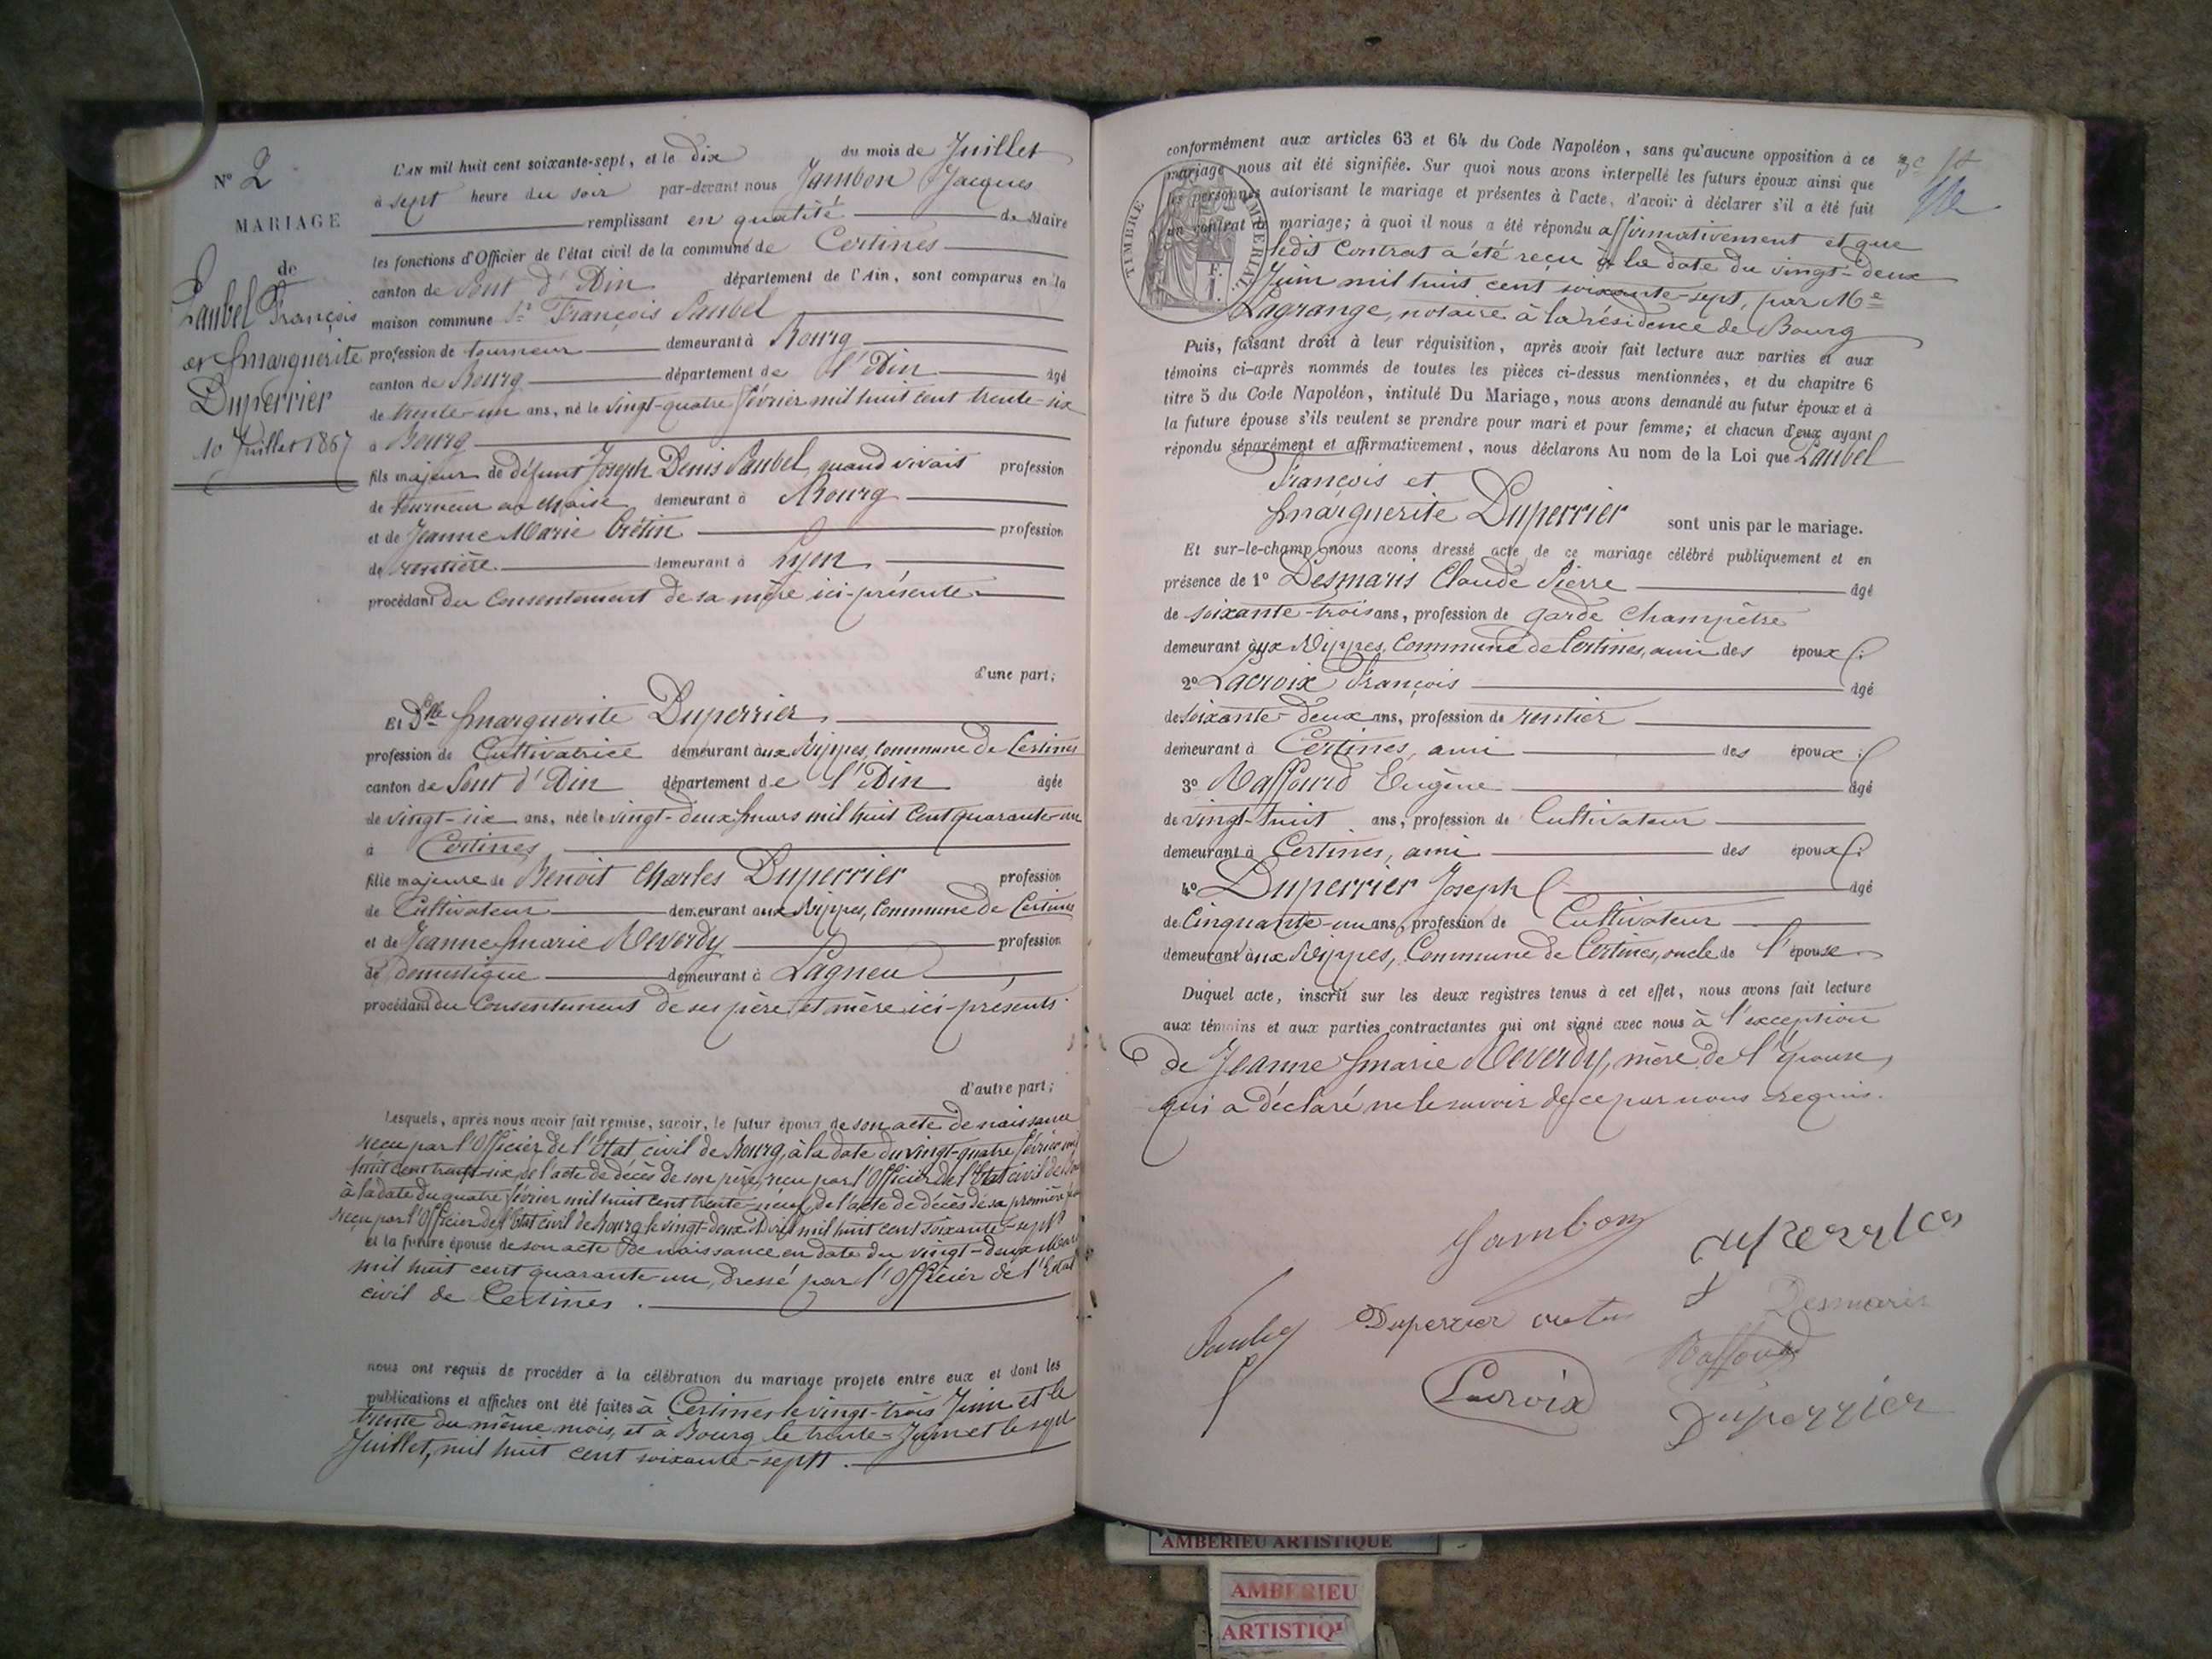 N° 2
MARIAGE
de
Paubel François
et Marguerite
Duperrier
10 Juillet 1867
L'AN mil huit cent soixante-sept, et le dix du mois de Juillet
à sept heure du soir par-devant nous Jambon Jacques
remplissant en qualité de Maire
les fonctions d'Officier de l'état civil de la commune de Certines
canton de Pont d'Ain département de l'Ain, sont comparus en la
maison commune Sr François Paubel
profession de tourneur demeurant à Bourg
canton de Bourg département de l'Ain âgé
de trente-un ans, né le vingt-quatre février mil huit cent trente-six
à Bourg
fils majeur de défunt Joseph Denis Paubel quand vivait profession
de tourneur en chaise demeurant à Bourg
et de Jeanne Marie Crétin profession
de rentière demeurant à Lyon
procédant du Consentement de sa mère ici-présente
d'une part;
Et Dlle Marguerite Duperrier
profession de Cultivatrice demeurant aux Rippes, Commune de Certines
canton de Pont d'Ain département de l'Ain âgée
de vingt-six ans, née le vingt-deux Mars mil huit Cent quarante-un
à Certines
fille majeure de Benoit Charles Duperrier profession
de Cultivateur demeurant aux Rippes, Commune de Certines
et de Jeanne Marie Reverdy profession
de domestique demeurant à Lagneu
procédant du Consentement de ses père et mère ici-présents
d'autre part;
Lesquels, après nous avoir fait remise, savoir, le futur époux de son acte de naissance
reçu par l'Officier de l'Etat civil de Bourg, à la date du vingt-quatre février mil
huit cent trente-six, de l'acte de décès de son père, reçu par l'Officier de l'Etat civil de
à la date du quatre février mil huit cent trente-neuf, de l'acte de décès de sa première
reçu par l'Officier de l'Etat civil de Bourg le vingt-deux Avril mil huit cent soixante-sept
et la future épouse de son acte de naissance en date du vingt-deux Mars
mil huit cent quarante-un, dressé par l'Officier de l'Etat
civil de Certines.
nous ont requis de procéder à la célébration du mariage projeté entre eux et dont les
publications et affiches ont été faites à Certines le vingt-trois Juin et le
trente du même mois, et à Bourg le trente Juin et le sept
Juillet, mil huit cent soixante-sept.
conformément aux articles 63 et 64 du Code Napoléon, sans qu'aucune opposition à ce
mariage nous ait été signifiée. Sur quoi nous avons interpellé les futurs époux ainsi que
les personnes autorisant le mariage et présentes à l'acte, d'avoir à déclarer s'il a été fait
un contrat de mariage; à quoi il nous a été répondu affirmativement et que
ledit Contrat a été reçu à la date du vingt-deux
Juin mil huit cent soixante-sept, par Me
Lagrange, notaire à la résidence de Bourg
TIMBRE IMPÉRIAL
Puis, faisant droit à leur réquisition, après avoir fait lecture aux parties et aux
témoins ci-après nommés de toutes les pièces ci-dessus mentionnées, et du chapitre 6
titre 5 du Code Napoléon, intitulé Du Mariage, nous avons demandé au futur époux et à
la future épouse s'ils veulent se prendre pour mari et pour femme; et chacun d'eux ayant
répondu séparément et affirmativement, nous déclarons Au nom de la Loi que Paubel
François et
Marguerite Duperrier sont unis par le mariage.
Et sur-le-champ nous avons dressé acte de ce mariage célébré publiquement et en
présence de 1° Desmaris Claude Pierre âgé
de soixante-trois ans, profession de garde Champêtre
demeurant aux Rippes, Commune de Certines, ami des époux;
2° Lacroix François âgé
de soixante-deux ans, profession de rentier
demeurant à Certines, ami des époux;
3° Raffourd Eugène âgé
de vingt-huit ans, profession de Cultivateur
demeurant à Certines, ami des époux;
4° Duperrier Joseph âgé
de Cinquante-un ans, profession de Cultivateur
demeurant aux Rippes, Commune de Certines, oncle de l'épouse
Duquel acte, inscrit sur les deux registres tenus à cet effet, nous avons fait lecture
aux témoins et aux parties contractantes qui ont signé avec nous à l'exception
de Jeanne Marie Reverdy, mère de l'épouse,
qui a déclaré ne le savoir de ce par nous requis.
Jambon
Duperrier
Desmaris
Duperrier
Raffourd
Lacroix
Duperrier
AMBERIEU ARTISTIQUE
AMBERIEU
ARTISTIQ